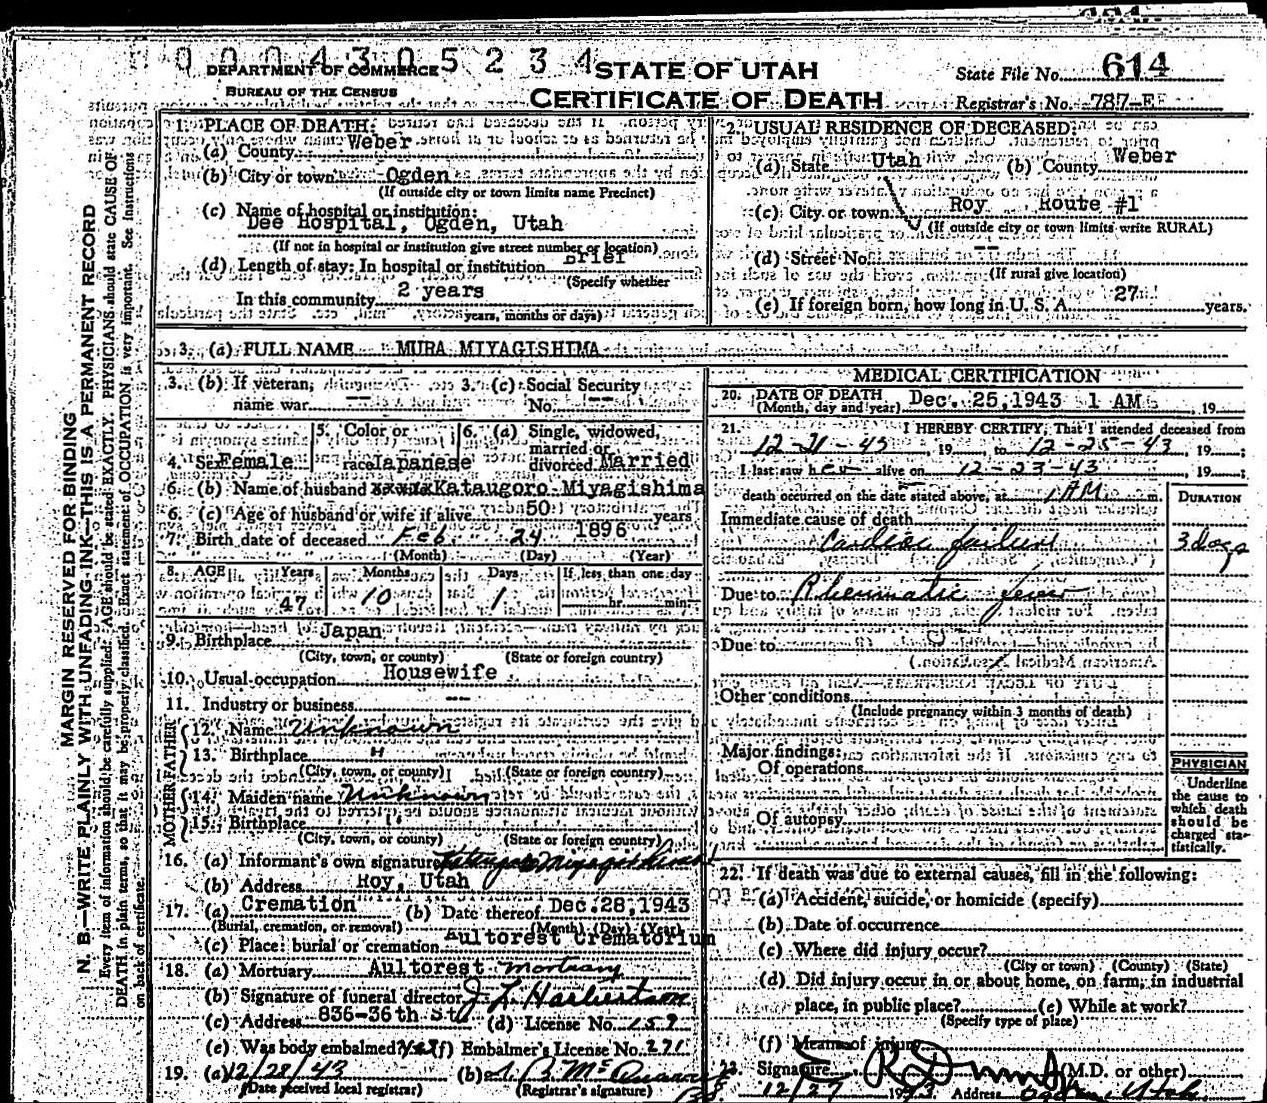 0 0 0 4 3 0 5 2 3 4
DEPARTMENT OF COMMERCE
BUREAU OF THE CENSUS
STATE OF UTAH
CERTIFICATE OF DEATH
State File No. 614
Registrar's No. 787-E
MARGIN RESERVED FOR BINDING
N. B.—WRITE PLAINLY WITH UNFADING INK—THIS IS A PERMANENT RECORD
Every item of information should be carefully supplied. AGE should be stated EXACTLY. PHYSICIANS should state CAUSE OF
DEATH in plain terms, so that it may be properly classified. Exact statement of OCCUPATION is very important. See Instructions
on back of certificate.
1. PLACE OF DEATH:
(a) County Weber
(b) City or town Ogden
(If outside city or town limits name Precinct)
(c) Name of hospital or institution:
Dee Hospital, Ogden, Utah
(If not in hospital or institution give street number or location)
(d) Length of stay: In hospital or institution Brief
(Specify whether
In this community 2 years
years, months or days)
2. USUAL RESIDENCE OF DECEASED:
(a) State Utah (b) County Weber
(c) City or town Roy Route #1
(If outside city or town limits write RURAL)
(d) Street No. --
(If rural give location)
(e) If foreign born, how long in U. S. A. 27 years.
3. (a) FULL NAME MURA MIYAGISHIMA
3. (b) If veteran, name war --
3. (c) Social Security No. --
4. Sex Female
5. Color or race Japanese
6. (a) Single, widowed, married or divorced Married
6. (b) Name of husband Kataugoro Miyagishima
6. (c) Age of husband or wife if alive 50 years
7. Birth date of deceased Feb. 24 1896
(Month) (Day) (Year)
8. AGE Years 47 Months 10 Days 1 If less than one day
hr. min.
9. Birthplace Japan
(City, town, or county) (State or foreign country)
10. Usual occupation Housewife
11. Industry or business ---
FATHER
12. Name Unknown
13. Birthplace "
(City, town, or county) (State or foreign country)
MOTHER
14. Maiden name Unknown
15. Birthplace "
(City, town, or county) (State or foreign country)
16. (a) Informant's own signature
(b) Address Roy, Utah
17. (a) Cremation (b) Date thereof Dec. 28, 1943
(Burial, cremation, or removal) (Month) (Day) (Year)
(c) Place: burial or cremation Aultorest Crematorium
18. (a) Mortuary Aultorest Mortuary
(b) Signature of funeral director
(c) Address 836-36th St (d) License No. 159
(e) Was body embalmed? Yes (f) Embalmer's License No. 271
19. (a) 12/28/43 (b)
(Date received local registrar) (Registrar's signature)
MEDICAL CERTIFICATION
20. DATE OF DEATH
(Month, day and year) Dec. 25, 1943 1 AM, 19
21. I HEREBY CERTIFY, That I attended deceased from
12-21-43, 19 to 12-25-43, 19 ;
I last saw her alive on 12-23-43, 19 ;
death occurred on the date stated above, at 1 AM m.
DURATION
Immediate cause of death
Cardiac failure 3 days
Due to Rheumatic fever
Due to
Other conditions
(Include pregnancy within 3 months of death)
Major findings:
Of operations
Of autopsy
PHYSICIAN
Underline
the cause to
which death
should be
charged sta-
tistically.
22. If death was due to external causes, fill in the following:
(a) Accident, suicide, or homicide (specify)
(b) Date of occurrence
(c) Where did injury occur?
(City or town) (County) (State)
(d) Did injury occur in or about home, on farm, in industrial
place, in public place? (e) While at work?
(Specify type of place)
(f) Means of injury
23. Signature (M.D. or other)
12/27 1943 Address Ogden, Utah